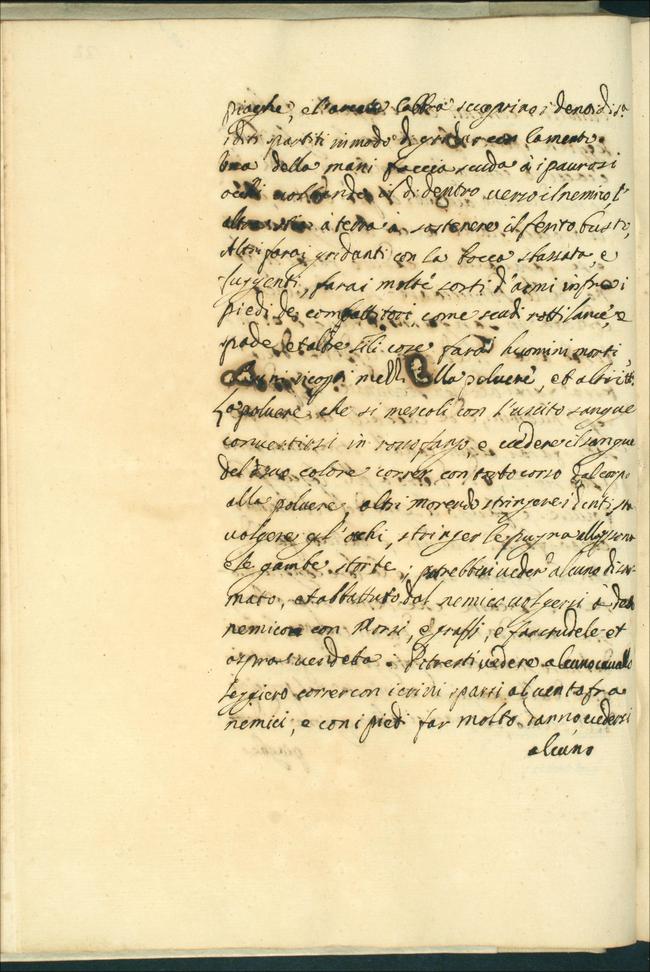 pieghe, e l'arcate labbra scuoprino i denti di sa
i deti spartiti in modo di gridar con lamento.
una della mani faccia scudo ai paurosi
ochi voltando il di dentro verso il nemico l'
altra stia a terra a sostenere il ferito busto,
Altri farai gridanti con la bocca sbarrata, e
fuggenti, farai molte sorti d'armi infra i
piedi de combattitori come scudi rotti lancie, e
spade, et altre simili cose farai huomini morti,
alcuni ricoperti mezzi dalla polvere, et altri tt
La polvere che si mescoli con l'uscito sangue
convertirsi in rosso fango, e vedere il sangue
del suo colore correr con torto corso dal corpo
alla polvere altri morendo stringere i denti str
volgere gl'ochi, stringer le pugna alla persona
e le gambe storte; potrebbesi veder alcuno disar
mato, et abbattuto dal nemico volgersi a detto
nemico con Morsi, e graffi, e far crudele et
aspra vendetta. Potresti vedere alcuno cavallo
leggiero correr con i crini sparsi al vento fra
nemici, e con i piedi far molto danno, vedersi
alcuno